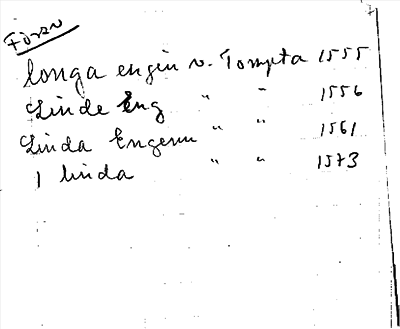 Försv
longa engin v. Tompta 1555
Linde Eng " " 1556
Linda Engenu " " 1561
1 linda " " 1573